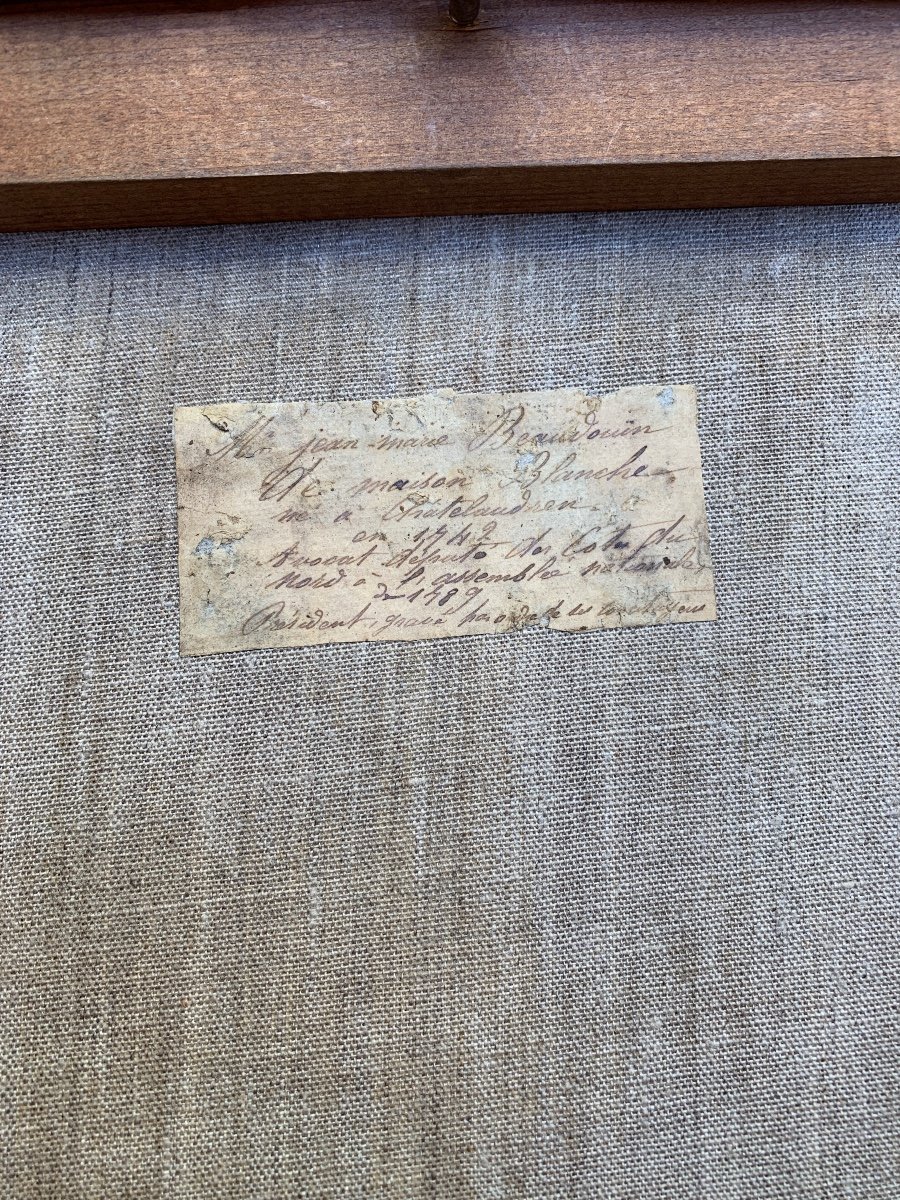 Mr jean-marie Beaudouin
de maison Blanche
né à Châtelaudren
en 1742
Avocat député des Côtes du
Nord à l'assemblée nationale
de 1789
Président, gravé